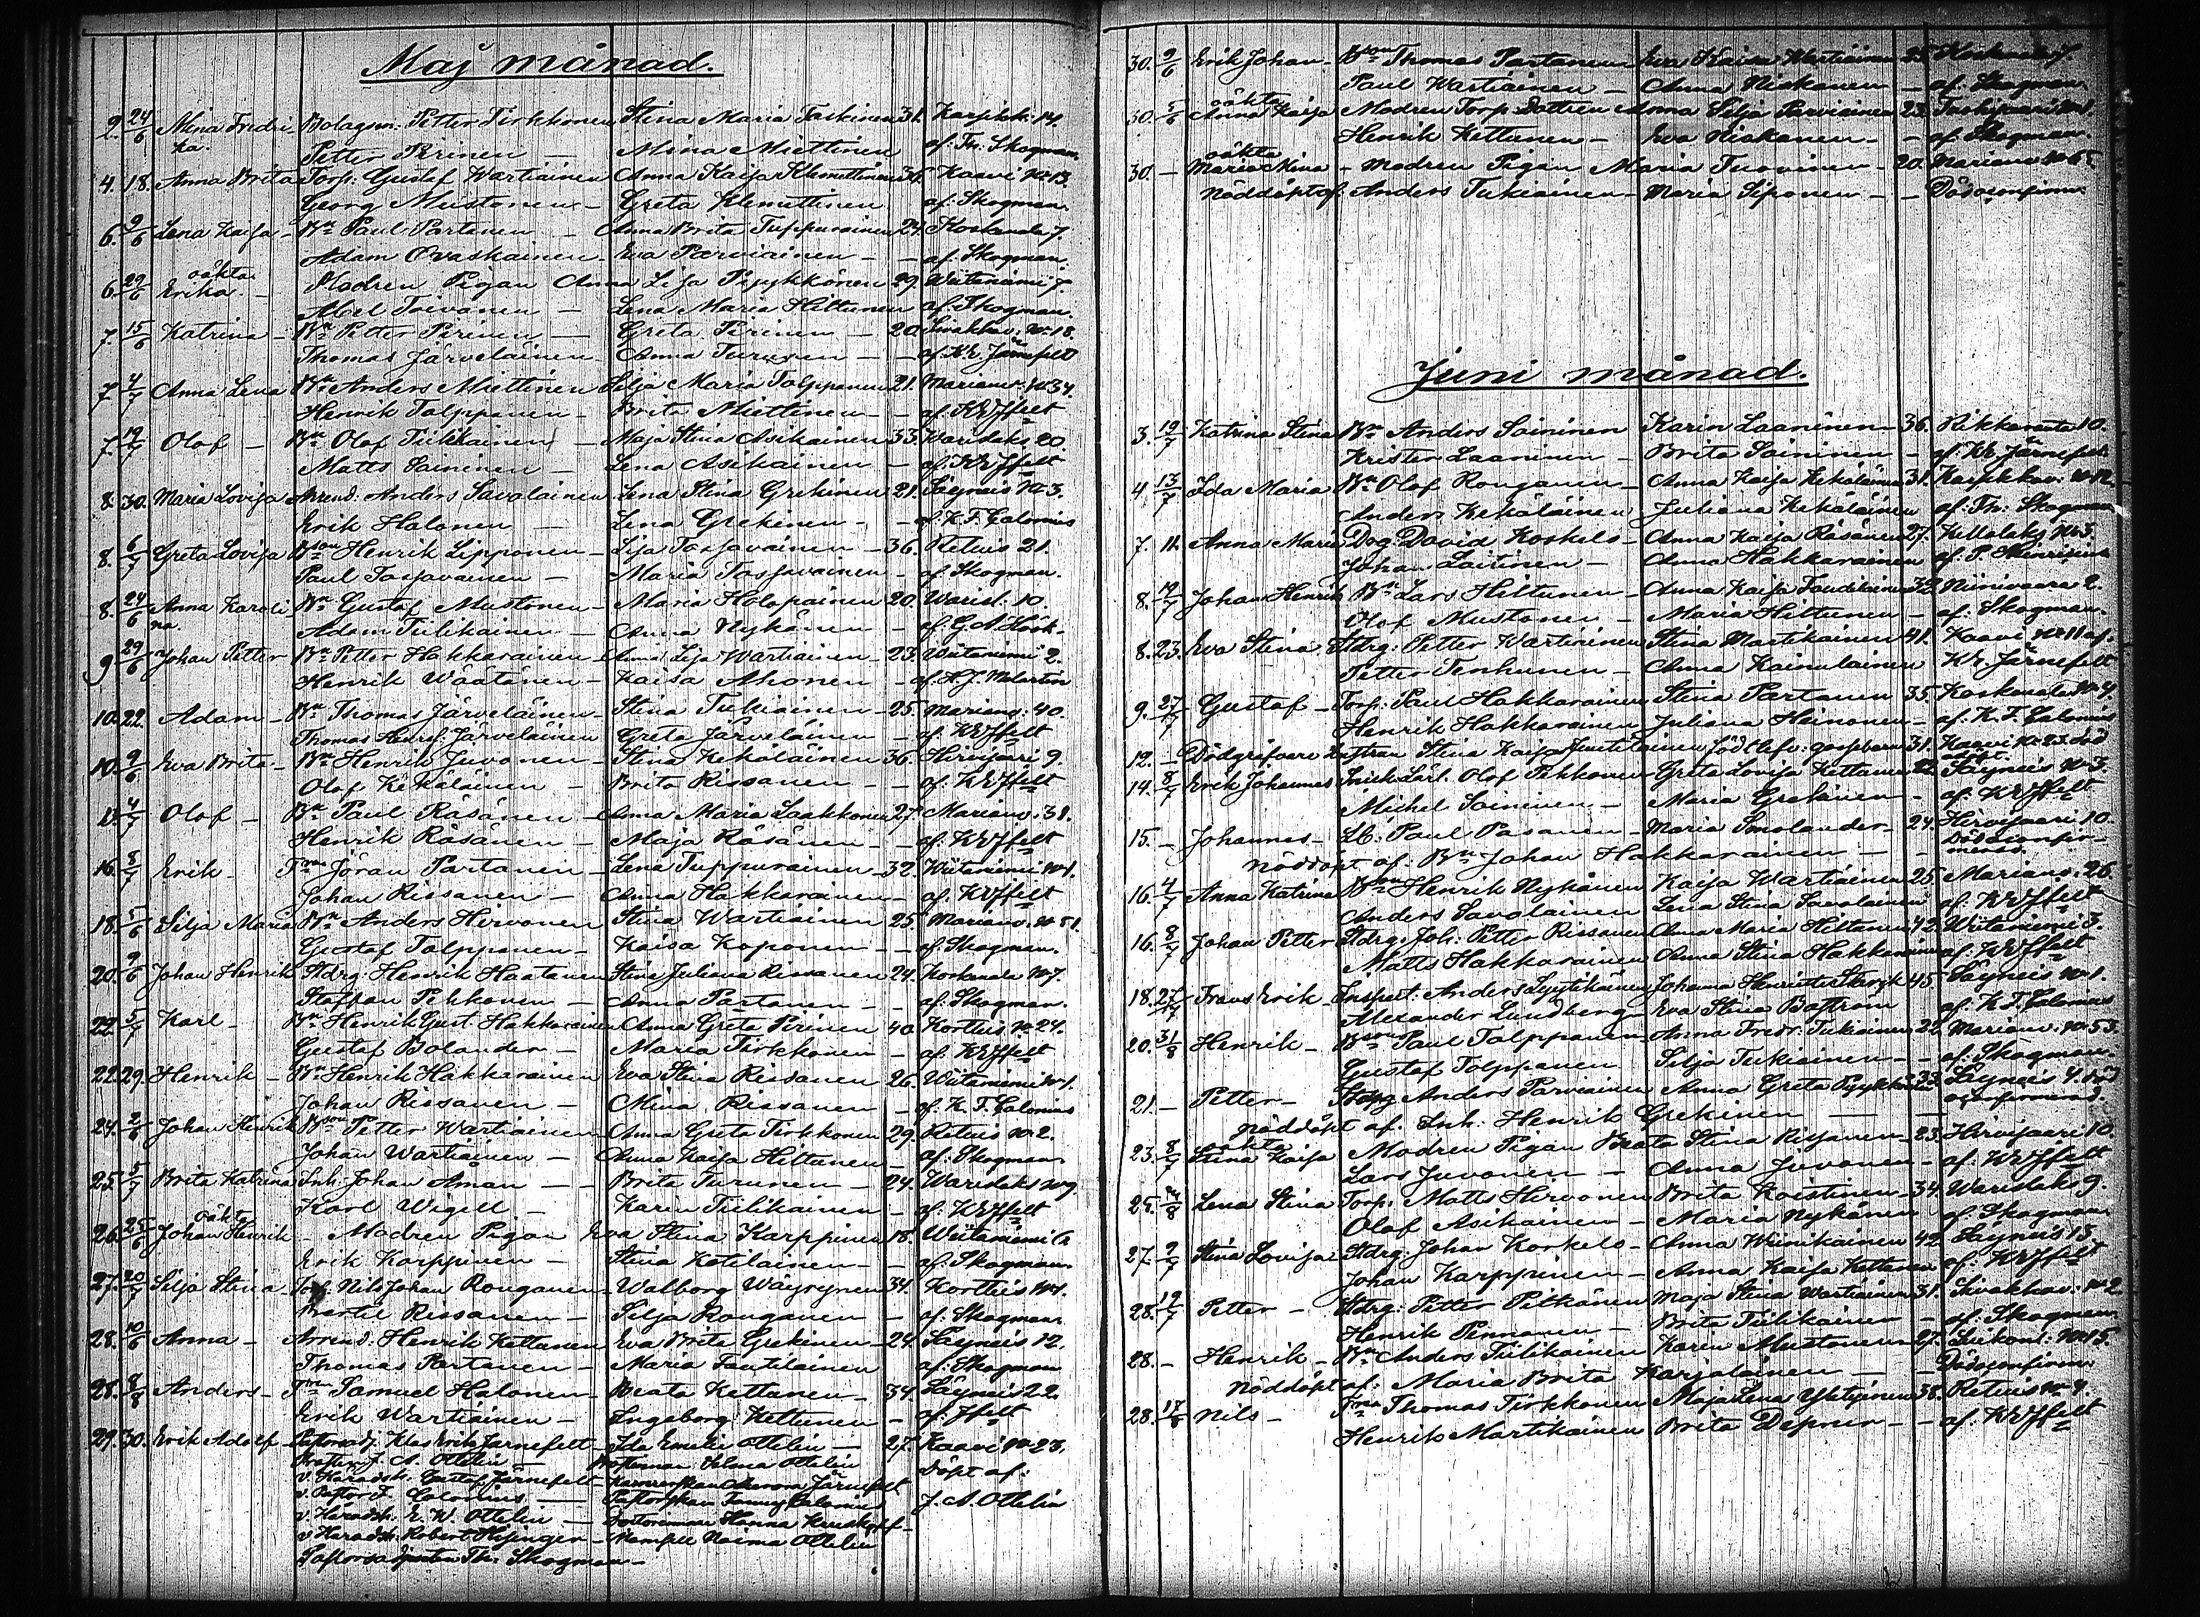 Maj månad.
2. 24/6 Mina Fredri Bolagsm: Petter Tirkkonen Stina Maria Taskinen 31. Karsikk: 14.
ka. Petter Pirinen — Mina Miettinen af: Th. Skogman.
4. 18. Anna Brita Torp: Gustaf Wartiainen Anna Kaija Klemettinen 36. Kaavi No 13.
Georg Mustonen — Greta Klemettinen af: Skogman.
6. 9/6 Lena Kaisa — Bn Paul Partanen — Anna Brita Tuppurainen 24. Koskenala 7.
Adam Ovaskainen — Eva Parviainen — - af: Skogman
6. 29/6 oäkta Erika. — Modren Pigan Anna Lisa Pyykkönen 29. Wiitaniemi 7.
Abel Toivanen — Lena Maria Hiltunen af: Skogman.
7. 15/6 Katrina — Bn Petter Pirinen — Greta Pirinen — 20 No 18
Thomas Järveläinen — Anna Turunen — - af Kr. Järnefelt
7. 4/7 Anna Lena Bn Anders Miettinen Silja Maria Tolppanen 21. Marianv. No 34.
Henrik Tolppanen — Brita Miettinen — - af. KEJffelt
7. 19/7 Olof — Bn Olof Tiilikkainen Maja Stina Asikainen 33. Warislaks 20
Matts Saininen — Lena Asikainen — af. KEJffelt
8. 30. Maria Lovisa Arrend: Anders Savolainen Lena Stina Grekinen 21. Säyneis No 3.
Erik Halonen — Lena Grekinen — - af K F. Calonius
8. 6/7 Greta Lovisa Bson Henrik Lipponen — Lisa Tossavainen — 36. Retuis 21.
Paul Tossavainen — Maria Tossavainen - af Skogman.
8. 24/6 Anna Karoli Bn Gustaf Mustonen — Maria Holopainen 20 Warisl: 10
na. Adam Tiilikainen — Anna Nykänen — - af G A Höök.
9 29/6 Johan Petter Bn Petter Hakkarainen Anna Lisa Wartiainen — 23. Wiitaniemi 2.
Henrik Väätänen — Kaisa Ahonen — - af. A. J. Molarten
10. 22. Adam — Bn Thomas Järveläinen — Stina Tukiainen — 25. Marianv: 40.
Thomas Henr: Järveläinen Greta Järveläinen — af. KEJffelt
10. 9/6 Eva Brita — Bn Henrik Juvonen — Stina Kekäläinen 36. Hirvisaari 9.
Olof Kekäläinen — Brita Rissanen — - af. KEJffelt
4/7 Olof — Bn Paul Räsänen — Anna Maria Laakkonen 27. Marianv. 31.
Henrik Räsänen — Maja Räsänen — - af. KEJffelt
16. 8/7 Erik — Jöran Partanen — Lena Tuppurainen — 32. Wiitaniemi No 1.
Johan Rissanen — Anna Hakkarainen — af. KEJffelt
18. 5/6 Silja Maria Bn Anders Hirvonen Stina Wartiainen 25. Marianv. No 51.
Gustaf Tolppanen — Kaisa Koponen — - af. Skogman.
20. 9/6 Johan Henrik Stdrg: Henrik Haatanen Stina Juliana Rissanen 24. Koskenala No 7.
Staffan Pekkonen — Anna Partanen — - af. Skogman.
22. 5/7 Karl — Bn Henrik Gust. Hakkarainen Anna Greta Pirinen 40. Korttis No 24.
Gustaf Bolander — Maria Tirkkonen — af. KEJffelt
22. 29. Henrik — Bn Henrik Hakkarainen Eva Stina Rissanen 26. Wiitaniemi No 1.
Johan Rissanen — Mina Rissanen — af. K. F. Calonius
24. 2/6 Johan Henrik Bson Petter Wartiainen Anna Greta Tirkkonen 29. Retuis No 2.
Johan Wartiainen — Anna Kaisa Hiltunen — af. Skogman
25. 5/7 Brita Katrina Inh. Johan Åman — Brita Turunen — 24. Warislaks No 9
Karl Wigell — Karin Tiilikainen — af. KEJffelt
26. 25/6 oäkt. Johan Henrik — Modren Pigan Eva Stina Karppinen 18. Wiitaniemi 6
Erik Karppinen — Stina Kotilainen — af. Skogman.
27. 20/7 Silja Stina Torp. Nils Johan Rouganen — Walborg Wäyrynen 34. Korttis No 1.
Bertil Rissanen — Silja Rouganen — af. Skogman
28. 10/6 Anna — Arrend. Henrik Kettunen Eva Brita Grekinen — 24. Säyneis 12.
Thomas Partanen — Maria Tautilainen af: Skogman
28. 8/8 Anders — Samuel Halonen — Beata Kettunen — 34 Säyneis 22.
Erik Wartiainen — Ingeborg Kettunen — af. Jffelt
29. 30. Erik Adolf — Pastorsadj. Klas Erik Järnefelt — Ida Emilia Ottelin — 27. Kaavi No 23.
Prosten J. A. Ottelin — Prostinnan Selma Ottelin döpt af:
v. Häradsh. Gustaf Järnefelt — Aurora Järnefelt J. A. Ottelin
v. Pastor F. Calonius — Pastorskan Fanny Calonius
v. Häradsh. E. W. Ottelin — Doktorinnan Hanna
v Häradsh. Robert Hisinger — Mamsell Naima Ottelin
Pastorsadjunkten Th. Skogman —
30. 9/6 Erik Johan — Bson Thomas Partanen — Eva Kaisa Wartiainen 25 Koskenala 7.
Paul Wartiainen — Anna Niskanen — af. Skogman
30. 5/6 oäkta Anna Kaisa Modren Torp. Dottren Anna Silja Parviainen 23. No 1.
Henrik Kettunen — Eva Niskanen — - af Skogman.
30. — oäkta Maria Mina — Modren Pigan Maria Tuovinen — 20. Marianv No 65.
Nöddöpt af Anders Tukiainen — Maria Siponen — - Död oconfirm
Juni månad.
3. 19/7 Katrina Stina Bn Anders Saininen Karin Laaninen — 36. Rikkaranta 10.
Krister Laaninen — Brita Saininen — af Kr. Järnefelt
4. 13/7 Ida Maria Bn Olof Rouganen — Anna Kaija Kekäläinen 31. Karsikkov: No 12.
Anders Kekäläinen Juliana Kekäläinen af: Th: Skogman
7. 11. Anna Maria Drg. David Koskelo — Anna Kaija Räsänen 27. Kellolaks No 3.
Johan Laitinen — Anna Hakkarainen af P.
8. 19/7 Johan Henrik Bn Lars Hiltunen — Anna Kaisa Tautilainen 32 Niinivaara 2.
Olof Mustonen — Maria Hiltunen — af Skogman.
8. 23. Eva Stina Stdrg: Petter Wartiainen Stina Martikainen 41. Kaavi No 11 af.
Petter Tenhunen — Anna Kainulainen Kr. Järnefelt
9. 27/7 Gustaf — Torp. Paul Hakkarainen Stina Partanen 35. Koskenala No 4.
Henrik Hakkarainen Juliana Heinonen — af. K. F. Calonius
12. — Dödgräfvare hustrun Stina Kaisa födt lefv: gossebarn 31. Kaavi No 23. död
14. 8/7 Erik Johannes Lärl. Olof Pekkonen Greta Lovisa Kettunen 22. Säyneis No 3.
Michel Saininen — Maria Grekinen — af. KEJffelt
15. — Johannes — Lb: Paul Pasanen — Maria Smolander — 24. Hirvisaari 10.
nöddöpt af. Bn Johan Hakkarainen — Död oconfirmerad.
16. 4/7 Anna Katrina Bson Henrik Nykänen Kaija Wartiainen 25. Marianv. 26.
Anders Savolainen Lena Stina Savolainen af KEJffelt
16. 8/7 Johan Petter Stdrg: Joh: Petter Rissanen Anna Maria Hiltunen 42. Wiitaniemi 3.
Matts Hakkarainen Anna Stina Hakkarainen af. KEJffelt
18. 27/7 Frans Erik — Inspekt: Anders Lyytikäinen Johanna Henrietta 45. Säyneis No 1.
Alexander Lundberg — Eva Stina Boström af. K. F. Calonius
20. 31/8 Henrik — Bson Paul Tolppanen — Anna Fredr. Tukiainen 22. Marianv. No 53.
Gustaf Tolppanen Silja Tukiainen — - af: Skogman.
21. — Petter — Stdrg Anders Parviainen Anna Greta Pyykkönen 33. Säyneis 4. död
nöddöpt af. Inh: Henrik Grekinen — oconfirmerad.
23. 8/7 oäkta Stina Kaisa Modren Pigan Beata Stina Rissanen — 23. Hirvisaari 10.
Lars Juvonen — Anna Juvonen — af: KEJffelt
25. Lena Stina Torp. Matts Hirvonen Brita Koistinen — 34. Warislaks 9.
Olof Asikainen — Maria Nykänen af Skogman
27. 9/7 Stina Lovisa Stdrg. Johan Korkelo — Anna Weinikainen 42. Säyneis 13.
Johan Karppinen — Anna Kaija Kettunen af. KEJffelt
28. 19/7 Petter — Stdrg: Petter Pitkänen Maja Stina Wartiainen 31. No 2
Henrik Pennanen — Brita Tiilikainen — af: Skogman
28. — Henrik — Bn Anders Tiilikainen Karin Mustonen 27. No 15.
nöddöpt af: Maria Brita Karjalainen — Död oconfirm
28. 17/8 Nils — Thomas Tirkkonen Maja Lena 38. Retuis No 4.
Henrik Martikainen Brita — af. KEJffelt